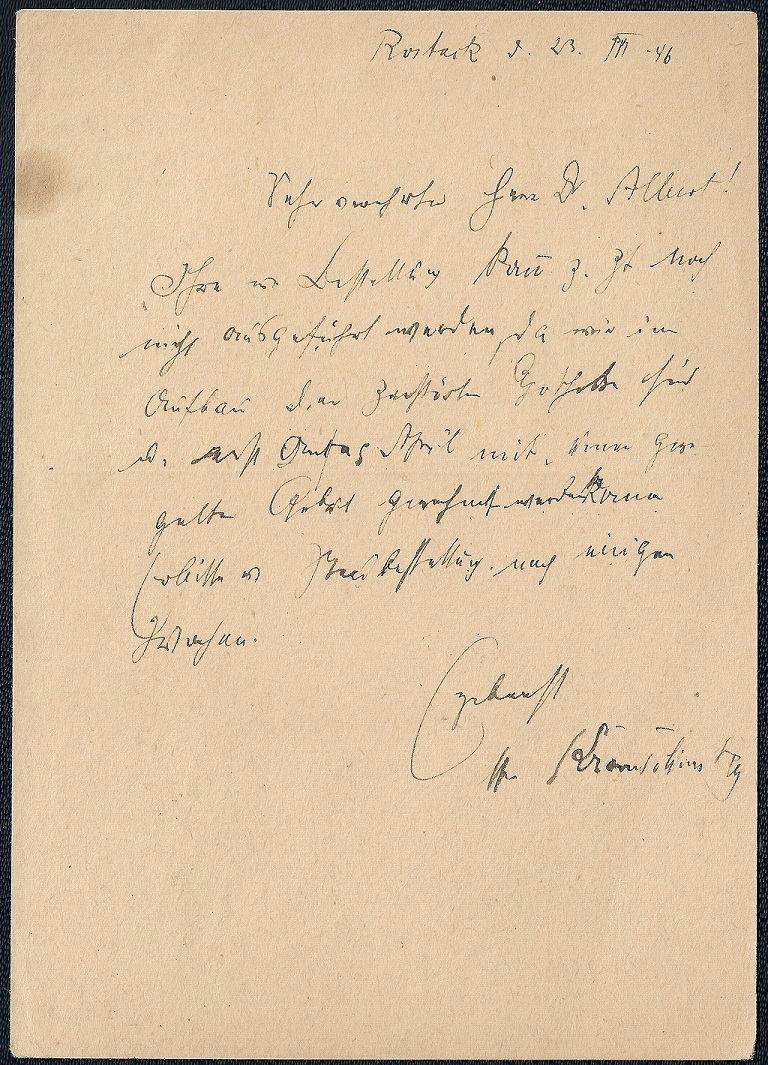 Rostock d. 23. III. 46
Sehr verehrter Herr Dr. Albert!
Ihre Bestellung kann z. Zt. noch
nicht ausgeführt werden, da wir im
Aufbau der zerstörten sind
u. erst Anfang April mit einer gere-
gelten gerechnet werden kann
Erbitte Neubestellung nach einigen
Wochen.
Ergebenst